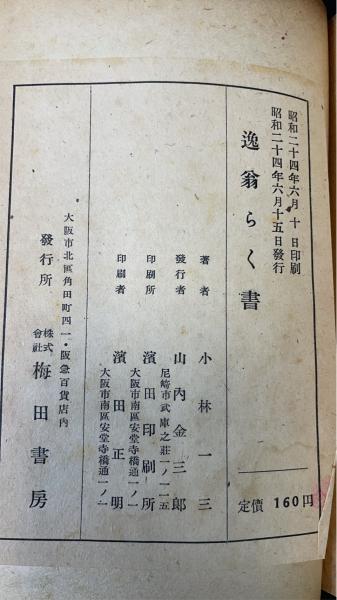 昭和二十四年六月 十 日印刷
昭和二十四年六月十五日發行
逸翁らく書
定價 160円
著者 小林一三
尼崎市武庫之莊一ノ一一五
發行者 山内金三郎
印刷所 濱田印刷所
大阪市南區安堂寺橋通一ノ一
印刷者 濱田正明
大阪市南區安堂寺橋通一ノ一
大阪市北區角田町四一・阪急百貨店内
發行所 株式會社 梅田書房